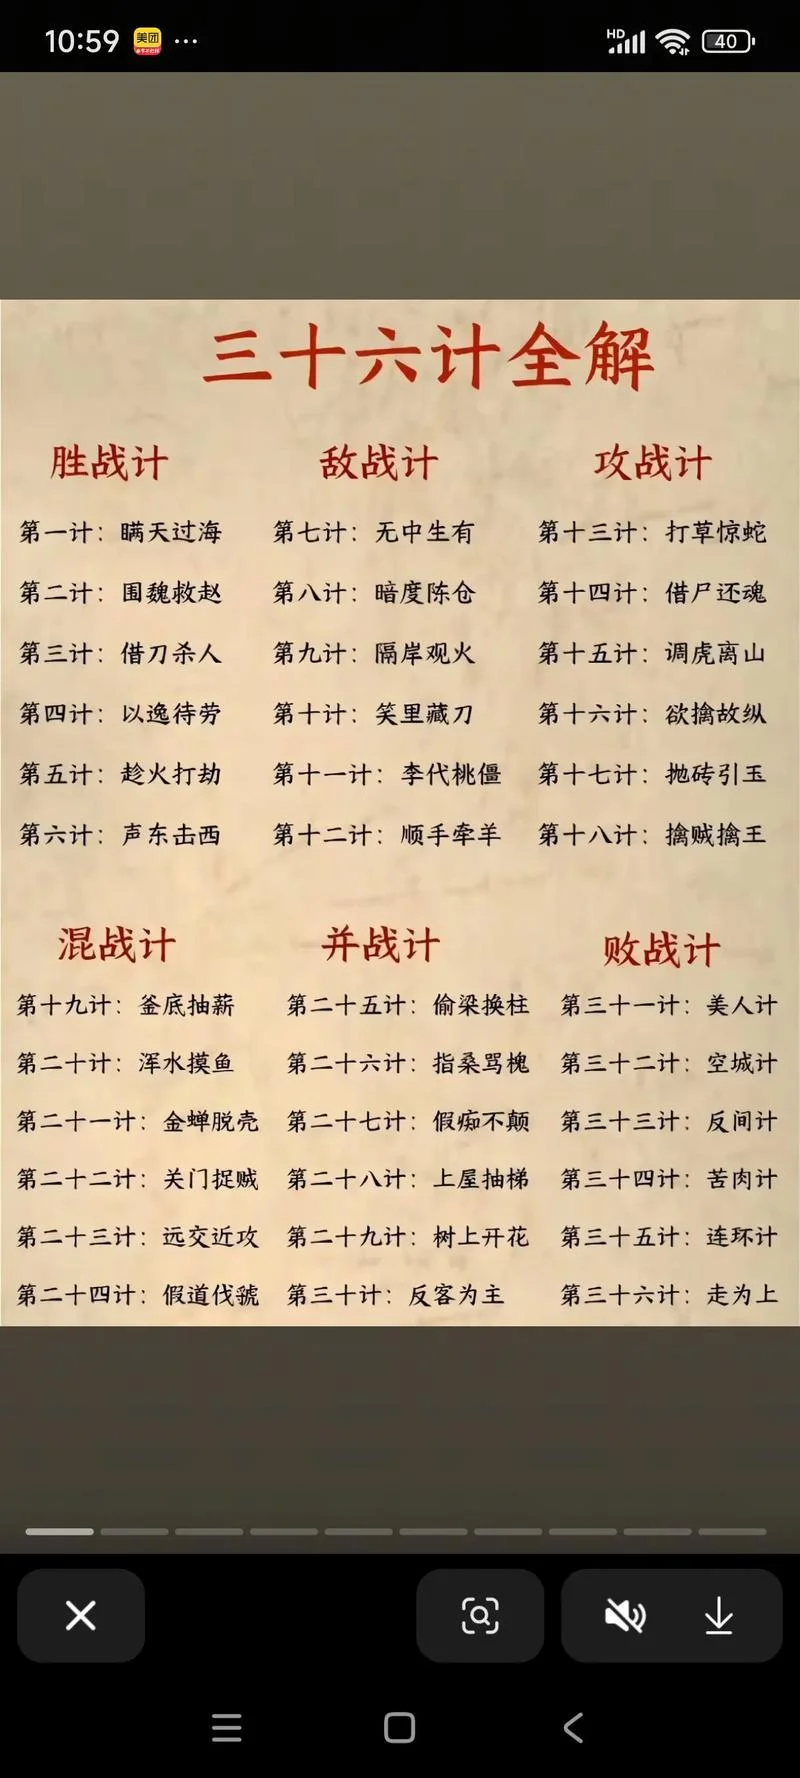 10:59 美团 ... HD 40
三十六计全解
胜战计
第一计：瞒天过海
第二计：围魏救赵
第三计：借刀杀人
第四计：以逸待劳
第五计：趁火打劫
第六计：声东击西
敌战计
第七计：无中生有
第八计：暗度陈仓
第九计：隔岸观火
第十计：笑里藏刀
第十一计：李代桃僵
第十二计：顺手牵羊
攻战计
第十三计：打草惊蛇
第十四计：借尸还魂
第十五计：调虎离山
第十六计：欲擒故纵
第十七计：抛砖引玉
第十八计：擒贼擒王
混战计
第十九计：釜底抽薪
第二十计：浑水摸鱼
第二十一计：金蝉脱壳
第二十二计：关门捉贼
第二十三计：远交近攻
第二十四计：假道伐虢
并战计
第二十五计：偷梁换柱
第二十六计：指桑骂槐
第二十七计：假痴不颠
第二十八计：上屋抽梯
第二十九计：树上开花
第三十计：反客为主
败战计
第三十一计：美人计
第三十二计：空城计
第三十三计：反间计
第三十四计：苦肉计
第三十五计：连环计
第三十六计：走为上